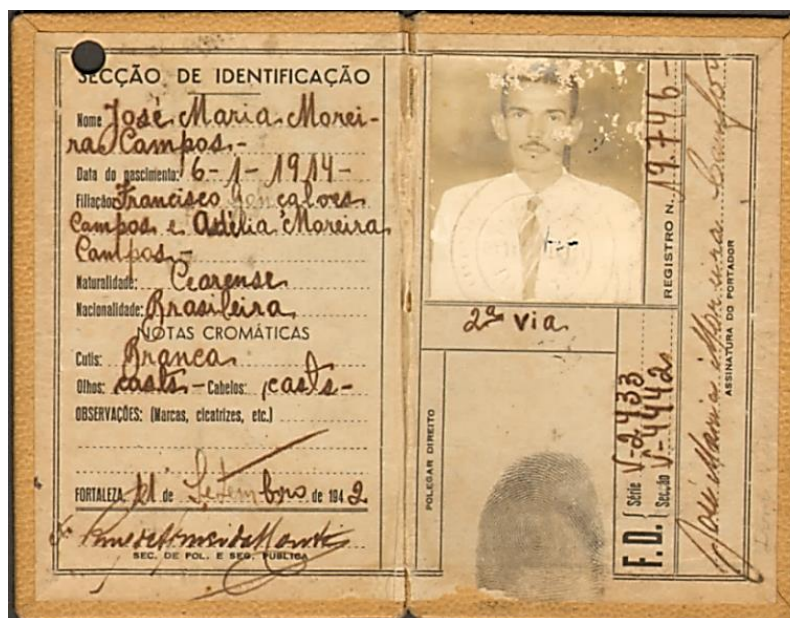 SECÇÃO DE IDENTIFICAÇÃO
Nome José Maria Morei-
ra Campos.-
Data do nascimento: 6-1-1914-
Filiação Francisco Gonçalves
Campos e Adélia Moreira
Campos.-
Naturalidade: Cearense
Nacionalidade: Brasileira
NOTAS CROMÁTICAS
Cutis: Branca
Olhos: casts - Cabelos: casts-
OBSERVAÇÕES: (Marcas, cicatrizes, etc.)
FORTALEZA, 11 de Setembro de 1942
SEC. DE POL. E SEG. PÚBLICA
REGISTRO N. 19.746-
2ª via
POLEGAR DIREITO
F.D. Série V-2433
Secção V-4442
José Maria Moreira Campos
ASSINATURA DO PORTADOR